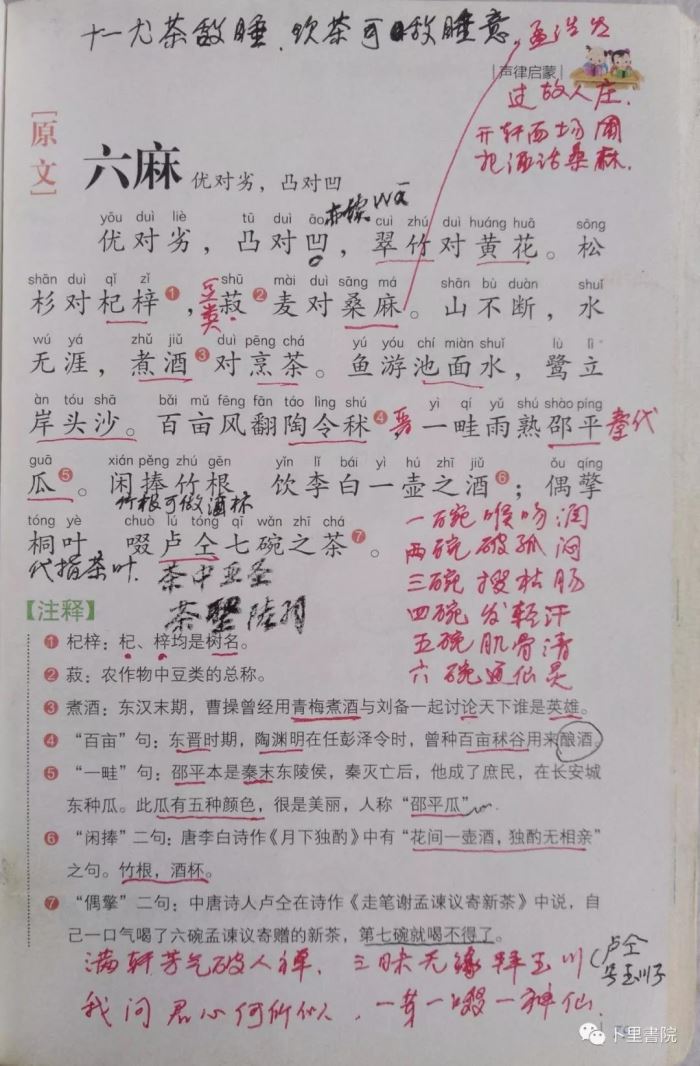 十一尤茶敵睡,饮茶可敵睡意。
孟浩然
声律启蒙
过故人庄.
开轩面场圃
把酒话桑麻.
[原文]
六麻 优对劣，凸对凹
亦读wā
yōu duì liè tū duì āo cuì zhú duì huáng huā sōng
优对劣，凸对凹，翠竹对黄花。松
shān duì qǐ zǐ shū mài duì sāng má shān bù duàn shuǐ
杉对杞梓❶，菽❷麦对桑麻。山不断，水
豆类
wú yá zhǔ jiǔ duì pēng chá yú yóu chí miàn shuǐ lù lì
无涯，煮酒❸对烹茶。鱼游池面水，鹭立
àn tóu shā bǎi mǔ fēng fān táo lìng shú yì qí yǔ shú shào píng
岸头沙。百亩风翻陶令秫❹，一畦雨熟邵平
晋
秦代
guā xián pěng zhú gēn yǐn lǐ bái yì hú zhī jiǔ ǒu qíng
瓜❺。闲捧竹根 饮李白一壶之酒❻；偶擎
竹根可做酒杯
tóng yè chuò lú tóng qī wǎn zhī chá
桐叶 啜卢仝七碗之茶❼。
代指茶叶.
茶中亚圣
茶聖陆羽
一碗喉吻润
两碗破孤闷
三碗搜枯肠
四碗发轻汗
五碗肌骨清
六碗通仙灵
【注释】
❶ 杞梓：杞、梓均是树名。
❷ 菽：农作物中豆类的总称。
❸ 煮酒：东汉末期，曹操曾经用青梅煮酒与刘备一起讨论天下谁是英雄。
❹ “百亩”句：东晋时期，陶渊明在任彭泽令时，曾种百亩秫谷用来酿酒。
❺ “一畦”句：邵平本是秦末东陵侯，秦灭亡后，他成了庶民，在长安城
东种瓜。此瓜有五种颜色，很是美丽，人称“邵平瓜”
❻ “闲捧”二句：唐李白诗作《月下独酌》中有“花间一壶酒，独酌无相亲”
之句。竹根，酒杯。
❼ “偶擎”二句：中唐诗人卢仝在诗作《走笔谢孟谏议寄新茶》中说，自
己一口气喝了六碗孟谏议寄赠的新茶，第七碗就喝不得了。
满轩芳气破人禅，三昧无缘拜玉川
(卢仝
号玉川子
我问君心何所似，一芽一啜一神仙.
卜里書院